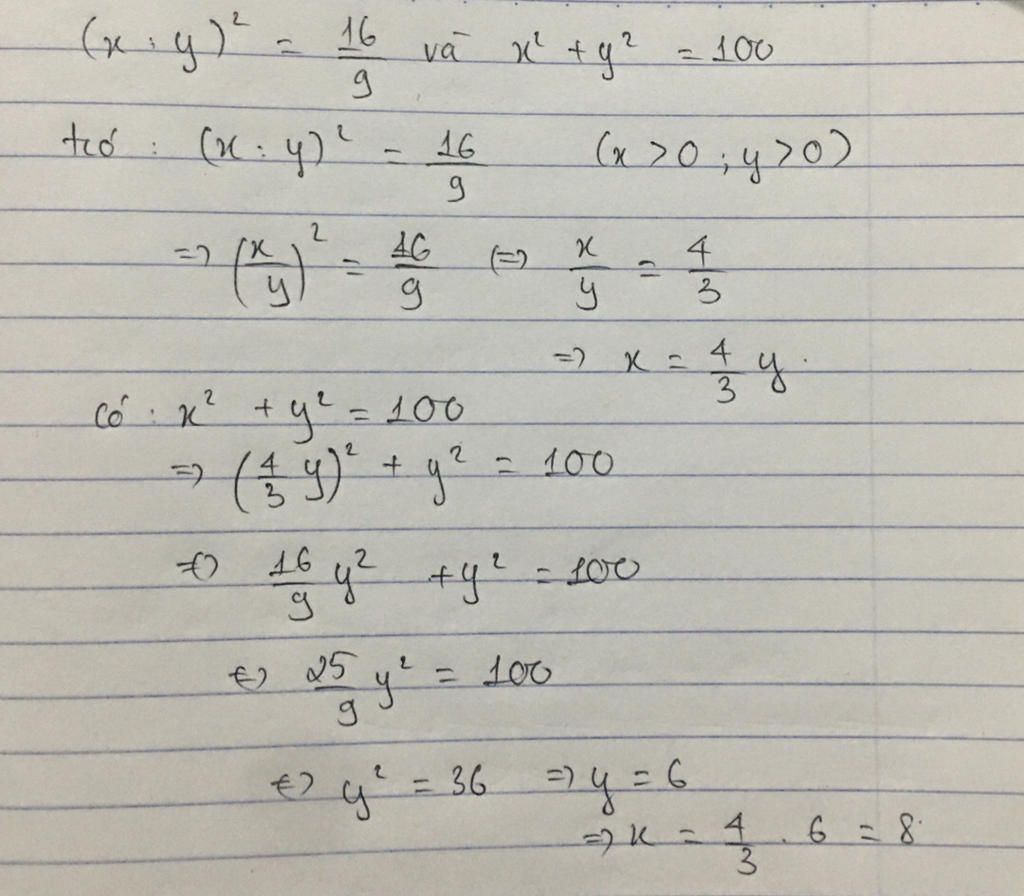 (x : y)² = 16/9 và x² + y² = 100
tcó : (x : y)² = 16/9 (x > 0 ; y > 0)
=> (x/y)² = 16/9 (=> x/y = 4/3
=> x = 4/3 y.
Có : x² + y² = 100
=> (4/3 y)² + y² = 100
<=> 16/9 y² + y² = 100
<=> 25/9 y² = 100
<=> y² = 36 => y = 6
=> x = 4/3 . 6 = 8